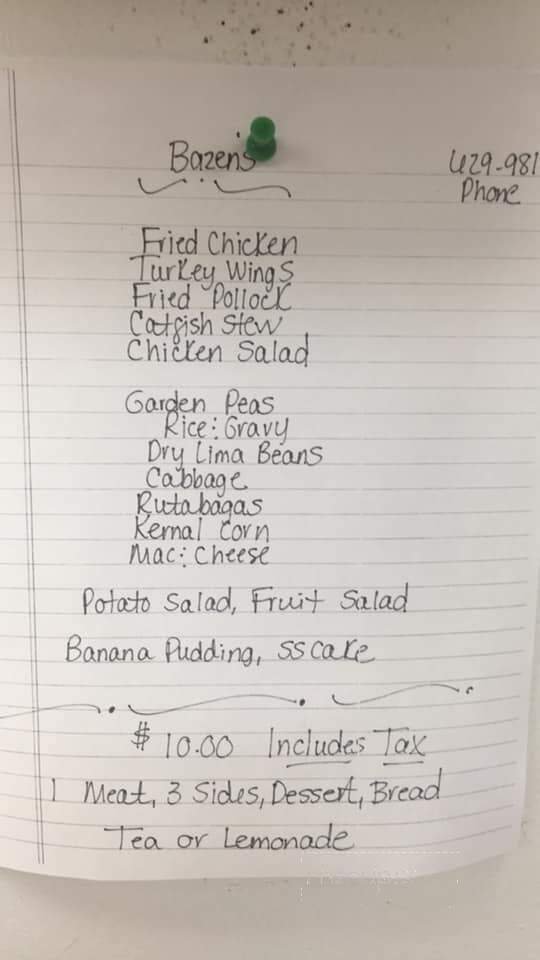 Bazen's
429-981
Phone
Fried Chicken
Turkey Wings
Fried Pollock
Catfish Stew
Chicken Salad
Garden Peas
Rice & Gravy
Dry Lima Beans
Cabbage
Rutabagas
Kernal Corn
Mac & Cheese
Potato Salad, Fruit Salad
Banana Pudding, SS Cake
$10.00 Includes Tax
1 Meat, 3 Sides, Dessert, Bread
Tea or Lemonade